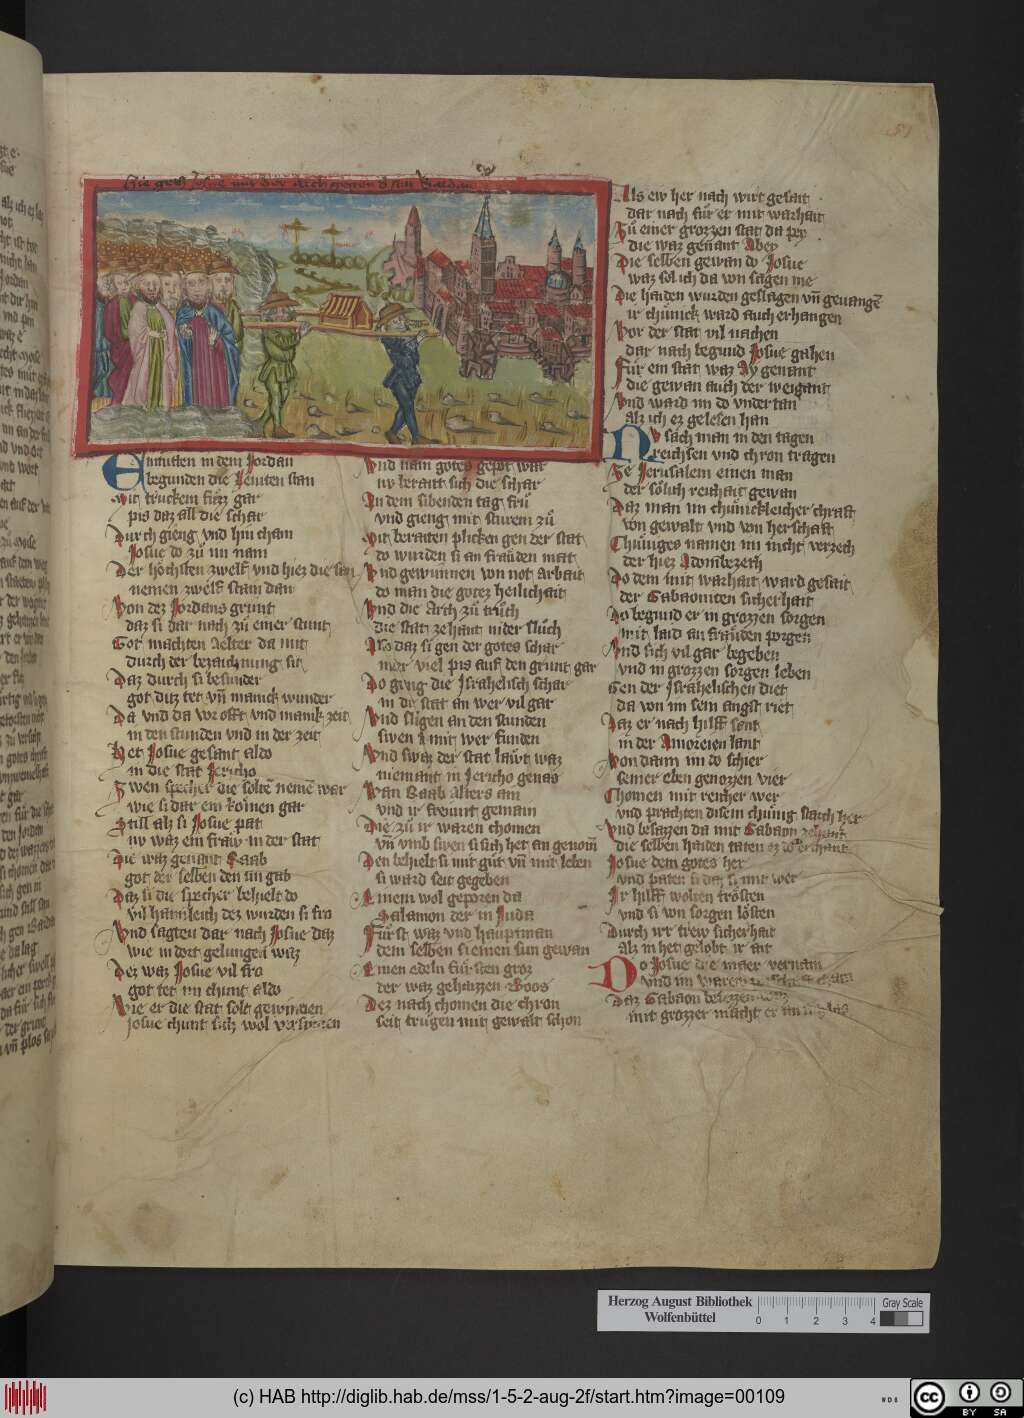 Hie gett Josue mit der Arch gegen
Enmitten in dem Jordan
begunden die Leuiten stan
Mit truckem fuzz gar
pis daz all die schar
Durch gieng vnd hin cham
Josue do zů im nam
Der höchsten zwelf vnd hiez die
nemen zwelf stain dan
Von dez Jordans grunt
daz si dar nach zů einer stunt
Got machten Aelter da mit
durch der bezaichnung sit
Daz durch si besunder
got ditz tet vñ manick wunder
Da vnd da we offt vnd manik zeit
in den stunden vnd in der zeit
Het Josue gesant aldo
in die stat Jericho
Zwen specher die soltē nemē war
wie si dar ein kömen gar
Still alz si Josue pat
nv waz ein fraw in der stat
Die waz genant Raab
got der selben den sin gab
Daz si die specher behielt do
vil hainleich dez wurden si fro
Vnd sagten dar nach Josue daz
wie in dort gelungen waz
Dez waz Josue vil fro
got tet im chunt aldo
Wie er die stat solt gewinnen
Josue chunt sich wol versinnen
Vnd nam gotes gepot war
nv berait sich die schar
In dem sibenden tag frů
vnd gieng mit sturem zů
Mit beraten plicken gen der stat
do wurden si an fraüden mat
Vnd gewunnen von not arbait
do man die gotez heilichait
Vnd die Arch zů trůch
die stat zehant nider slůch
Also daz si gen der gotes schar
nider viel pis auf den grunt gar
Do gieng die Israhelisch schar
in die stat an wer vil gar
Vnd slůgen an den stunden
swen si mit wer funden
Vnd swaz der stat läwt waz
niemant in Jericho genas
Wan Raab Alters ain
vnd ir freunt gemain
Die zů ir waren chomen
vñ vmb swen si sich het an genom̄
Den behielt si mit gůt vñ mit leben
si ward seit gegeben
Einem wol geporen da
Salamon der in Juda
Fürst waz vnd hauptman
dem selben si einen sun gewan
Einen edeln fürsten groz
der waz gehaizzen Boos
Dez nach chomen die chron
seit trůgen mit gewalt schon
51
Als ew her nach wirt gesait
dar nach für er mit warhait
Zů einer grozzen stat da pey
die waz genant Abey
Die selben gewan do Josue
waz sol ich da von sagen me
Die haiden wurden geslagen vñ geuangē
ir chünick ward auch erhangen
Vor der stat vil nachen
dar nach begund Josue gahen
Für ein stat waz Ay genant
die gewan auch der weigant
Vnd ward im do vndertan
alz ich ez gelesen han
Nv sach man in den tagen
reichsen vnd chron tragen
Ze Jerusalem einen man
der sölich reichait gewan
Daz man im chünickleicher chraft
von gewalt vnd von herschaft
Chüniges namen im nicht verzech
der hiez Adonibezech
Do dem mit warhait ward gesait
der Gabaoniten sicherhait
Do begund er in grozzen sorgen
mit laid an fräuden porgen
Vnd sich vil gar begeben
vnd in grozzen sorgen leben
Gen der Israhelischen diet
da von im sein angst riet
Daz er nach hilff sent
in der Amoreien lant
Von dann im do schier
seiner eben genozzen vier
Chomen mit reicher wer
vnd prachten disem chünig starch her
Vnd besazzen da mit Gabaon zehant
die selben haiden taten ez do erchant
Josue dem gotes her
vnd paten si daz si mit wer
Ir hilff wolten trösten
vnd si von sorgen lösten
Durch irr trew sicherhait
alz in het gelobt ir ait
Do Josue die maer vernam
vnd im warem
Daz Gabaon besezzen waz
mit grozzer macht er
Herzog August Bibliothek
Wolfenbüttel
0 1 2 3 4
Gray Scale
(c) HAB http://diglib.hab.de/mss/1-5-2-aug-2f/start.htm?image=00109
cc BY SA